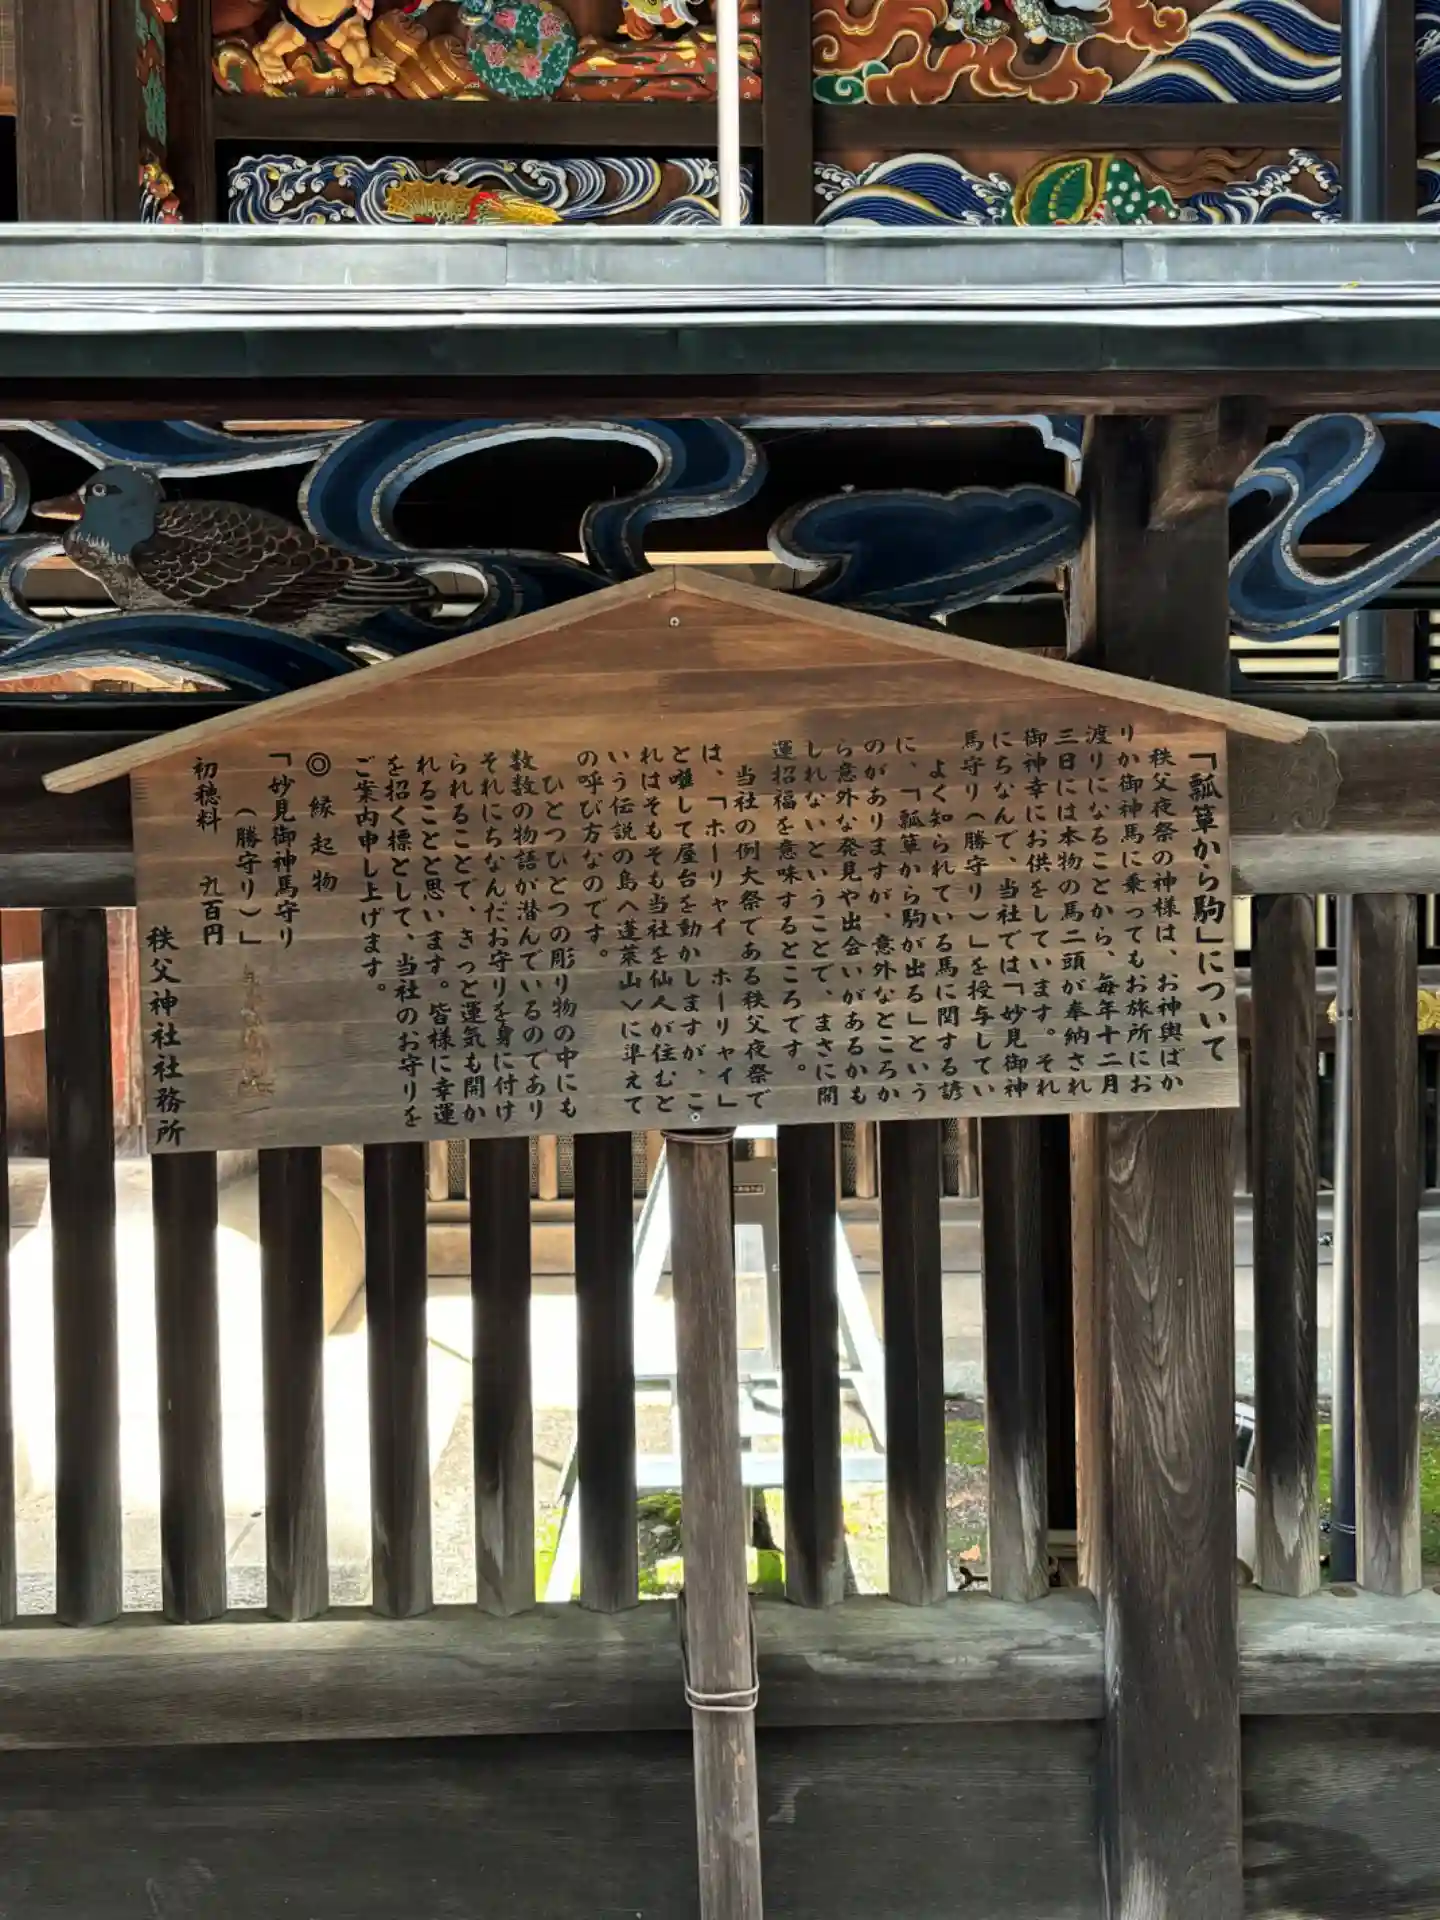 「瓢箪から駒」について
秩父夜祭の神様は、お神輿ばか
りか御神馬に乗ってもお旅所にお
渡りになることから、毎年十二月
三日には本物の馬二頭が奉納され
御神幸にお供をしています。それ
にちなんで、当社では「妙見御神
馬守り(勝守り)」を授与してい
よく知られている馬に関する諺
に、「瓢箪から駒が出る」という
のがありますが、意外なところか
ら意外な発見や出会いがあるかも
しれないということで、まさに開
運招福を意味するところです。
当社の例大祭である秩父夜祭で
は、「ホーリャイ ホーリャイ」
と囃して屋台を動かしますが、こ
れはそもそも当社を仙人が住むと
いう伝説の島へ蓬萊山〉に準えて
の呼び方なのです。
ひとつひとつの彫り物の中にも
数数の物語が潜んでいるのであり
それにちなんだお守りを身に付け
られることで、きっと運気も開か
れることと思います。皆様に幸運
を招く標として、当社のお守りを
ご案内申し上げます。
◎ 縁起物
「妙見御神馬守り
(勝守り)」
初穂料 九百円
秩父神社社務所